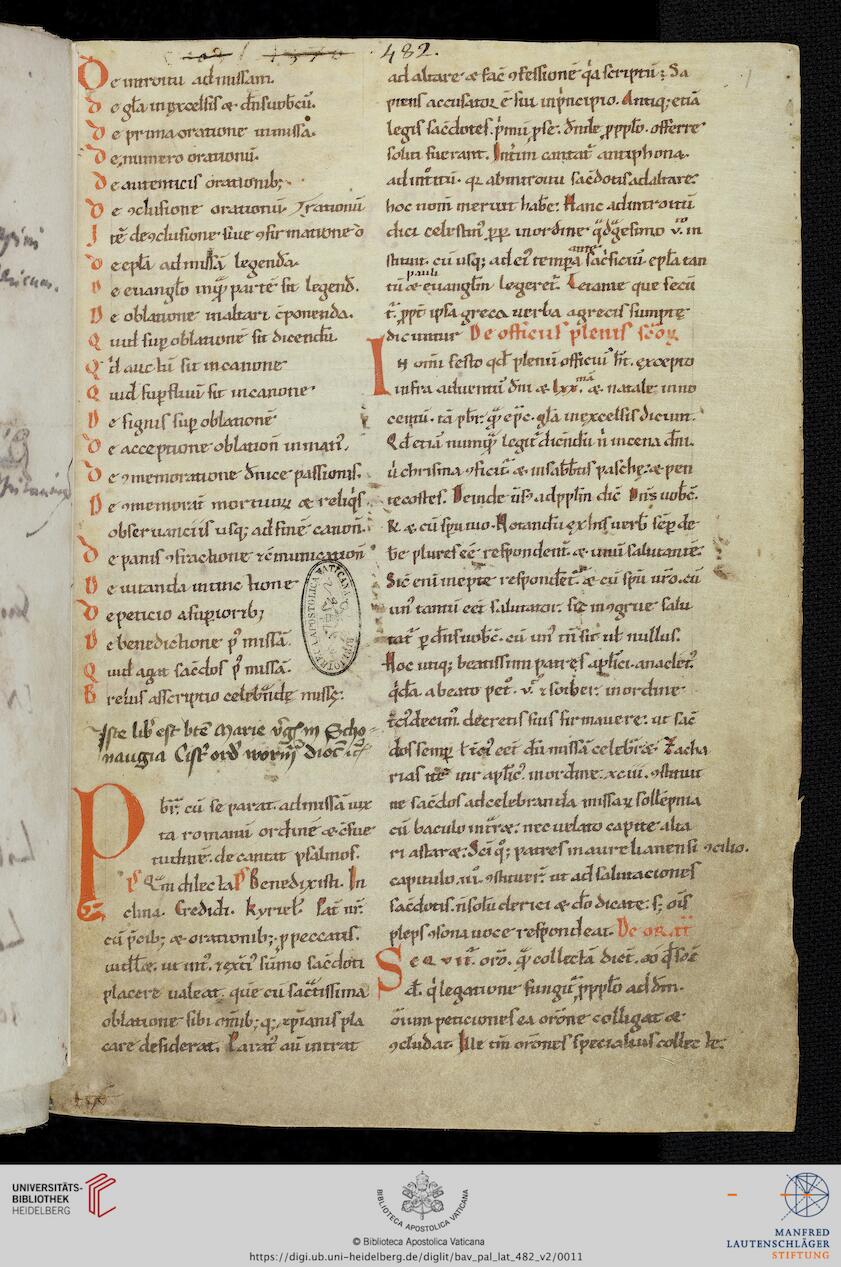 482.
De introitu ad missam.
de gła in excelsis & dn̄s uobcū.
de prima oratione in missa.
de numero orationū.
de autenticis orationib;
De ɔclusione orationū
Itē de ɔclusione siue ɔfirmatione
de epła ad missā legenda.
De euanglo in q̄ parte sit legend̄.
De oblatione in altari cponenda.
Quid sup oblatione sit dicendū.
Qd auctū sit in canone
Quid supfluū sit in canone
De signis sup oblationē
De acceptione oblation in mani.
De ɔmemoratione dn̄ice passionis.
De ɔmemorat mortuoꝝ & reliq̄s.
obseruanciis usq; ad finē canon̄.
de panis ɔfractione & cmunication
De uitanda intinctione
De peticio a superiorib;
De benedictione p missā.
Quid agat sac̄dos p missā.
Breuis asscriptio celebrandę missę.
Iste lib est bte Marie vgīs in Scho-
naugia Cist ord worm dioc
Pbr cū se parat ad missā iux
ta romanū ordinē & c̄sue
tudinē. decantat psalmos.
Quā dilecta. Ps Benedixisti. In
clina. Credidi. Kyriel. Pat nr.
cū p̄cib; & orationib; p peccatis.
ut int. sūmo sac̄doti
placere ualeat. quē cū sac̄tissima
oblatione sibi om̄ib; q; xp̄ianis pla
care desiderat. Parat aū intrat
ad altare & fac ɔfessionē q̄a scriptū ē; Sa
piens accusator ē sui in p̄ncipio. Antiq; etiā
legis sac̄dotes. p̄mū p se. dn̄de p pplo. offerre
soliti fuerant. Int̄im cantat antiphona.
ad intitū. q̄ ab introitu sac̄dotis ad altare
hoc nom̄ meruit habe. Hanc ad introitū
dici celestin pp in ordine q̄dgesimo v. in
stituit. cū usq; ad eī tempa ante sac̄ficiū epła tan
tū pauli & euanglm legeret. Letanie que secū
t. ppt ipsa greca uerba a grecis sumpte
dicuntur De officiis plenis sc̄oꝝ
In om̄i festo qd plenū officiū ht. excepto
infra aduentū dn̄i & lxx.ma & natale inno
centū. tā pbr. q̄ epc. gła in excelsis dicunt.
Qd etiā numq̄ legit dicendū n̄ in cena dn̄i.
ū chrisma ɔficit & in sabbtis paschę & pen
tecostes. Deinde ūs ad pplm dic Dn̄s uobc.
R. & cū spu tuo. Notandū ex his uerb sēp de
be plures ēē respondent & unū salutante
Sic enī inepte respondet & cū spu uro. cū
un tantū eēt salutator. sic inɔgrue salu
tat p dn̄s uobc. cū un tn̄ sit ut nullus.
Hoc utiq; beatissim patres aplici. anaclet
q̄da. a beato pet. v. & sother. in ordine
tc̄i decim. decretis suis firmauere. ut sac̄
dos semp eēt dū missā celebrare. Zacha
rias uir aplic in ordine. xciii. ɔstituit
ne sac̄dos ad celebranda missaꝝ sollēpnia
cū baculo intr&. nec uelato capite alta
ri astar&. Sci q; patres in aurelianensi ɔcilio.
capitulo. ɔstituer. ut ad salutaciones
sac̄dotis. n̄ solū clerici & do dicate. s; oīs
pleps ɔsona uoce respondeat. De orat
Sequit oro. q̄ collectā dict. eo q̄
legatione fungit p pplo ad dm̄.
oium peticiones ea orōne colligat &
ɔcludat. Ille tm̄ orōnes specialius collecte
BIBLIOTECA APOSTOLICA VATICANA
UNIVERSITÄTS-
BIBLIOTHEK
HEIDELBERG
BIBLIOTECA APOSTOLICA VATICANA
© Biblioteca Apostolica Vaticana
https://digi.ub.uni-heidelberg.de/diglit/bav_pal_lat_482_v2/0011
MANFRED
LAUTENSCHLÄGER
STIFTUNG